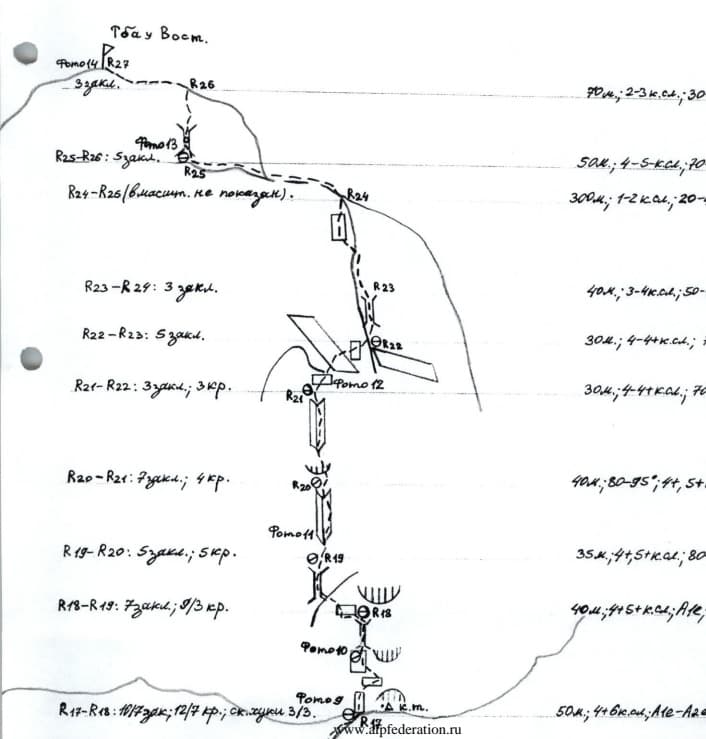 Тбау Вост.
Фото14 R27
3 закл.
R26
70м.; 2-3 к.сл.; 30
Фото13
R25-R26: 5закл.
50м.; 4-5-к.сл.; 70
R25
R24-R25 (в масшт. не показан).
R24
300м.; 1-2к.сл.; 20-
R23-R24: 3 закл.
R23
40м.; 3-4к.сл.; 50-
R22-R23: 5закл.
R22
30м.; 4-4+к.сл.;
R21-R22: 3закл.; 3кр.
Фото12
R21
30м.; 4-4+к.сл.; 70
R20-R21: 7закл.; 4кр.
R20
40м.; 80-95°; 4+, 5+
Фото11
R19-R20: 5закл.; 5кр.
R19
35м.; 4+, 5+к.сл.; 80
R18-R19: 7закл.; 9/3 кр.
R18
40м.; 4+5+к.сл.; А1е,
Фото10
Фото9
R17-R18: 10/7зак; 12/7 кр.; ск.хуки 3/3.
к.т.
50м.; 4+6к.сл.; А1е-А2е
R17
www.alpfederation.ru